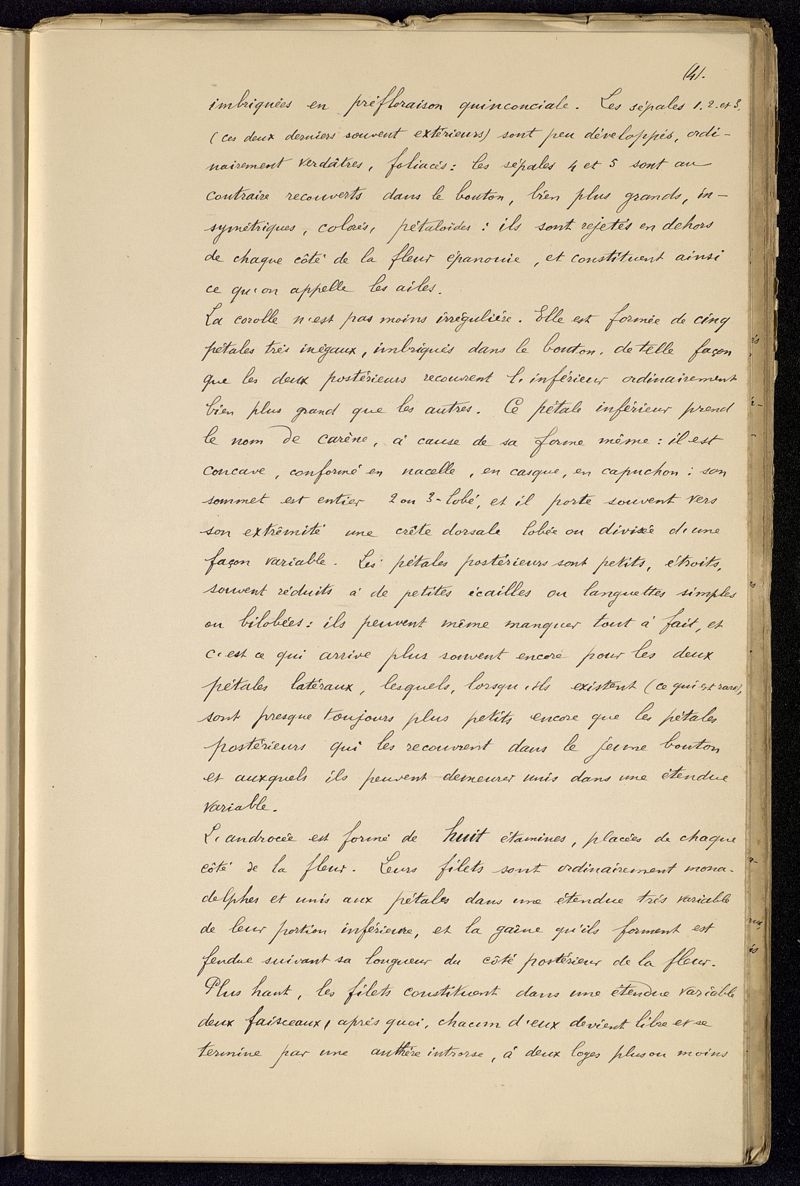 (4).
imbriquées en préfloraison quinconciale. Les sépales 1, 2 et 3,
(ces deux derniers souvent extérieurs) sont peu développés, ordi-
nairement verdâtres, foliacés : les sépales 4 et 5 sont au
contraire recouverts dans le bouton, bien plus grands, in-
symétriques, colorés, pétaloïdes : ils sont rejetés en dehors
de chaque côté de la fleur épanouie, et constituent ainsi
ce qu'on appelle les ailes.
La corolle n'est pas moins irrégulière. Elle est formée de cinq
pétales très inégaux, imbriqués dans le bouton, de telle façon
que les deux postérieurs recouvrent l'inférieur ordinairement
bien plus grand que les autres. Ce pétale inférieur prend
le nom de carène, à cause de sa forme même : il est
concave, conformé en nacelle, en casque, en capuchon ; son
sommet est entier 2 ou 3-lobé, et il porte souvent vers
son extrêmité une crête dorsale lobée ou divisée d'une
façon variable. Les pétales postérieurs sont petits, étroits,
souvent réduits à de petites écailles ou languettes simples
ou bilobées : ils peuvent même manquer tout à fait, et
c'est ce qui arrive plus souvent encore pour les deux
pétales latéraux, lesquels, lorsqu'ils existent (ce qui est rare),
sont presque toujours plus petits encore que les pétales
postérieurs qui les recouvrent dans le jeune bouton
et auxquels ils peuvent demeurer unis dans une étendue
variable.
L'androcée est formé de huit étamines, placées de chaque
côté de la fleur. Leurs filets sont ordinairement mona-
delphes et unis aux pétales dans une étendue très variable
de leur portion inférieure, et la gaîne qu'ils forment est
fendue suivant sa longueur du côté postérieur de la fleur.
Plus haut, les filets constituent dans une étendue variable
deux faisceaux, après quoi, chacun d'eux devient libre et se
termine par une anthère introrse, à deux loges plus ou moins